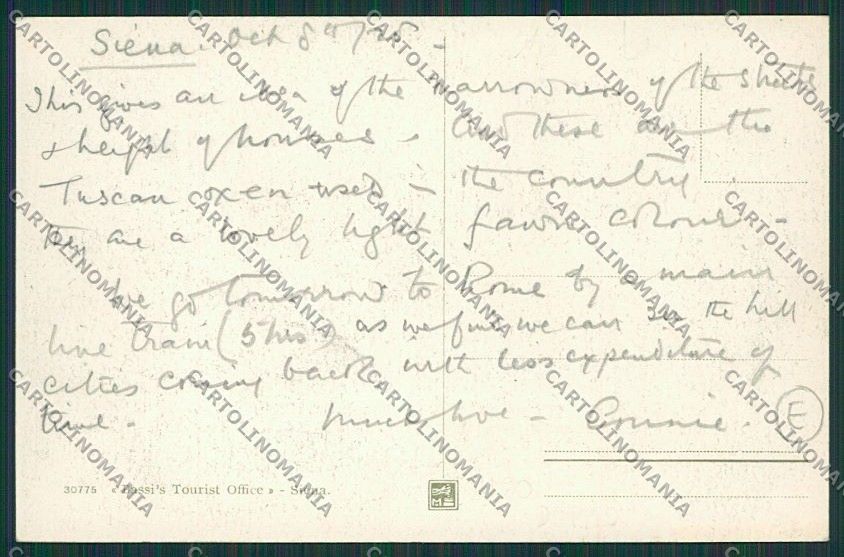 Siena. Oct 8th /28 -
This gives an idea of the narrowness of the streets
& height of houses. And these are the
Tuscan oxen used in the country.
They are a lovely light fawn colour -
We go tomorrow to Rome by main
line train (5 hrs) as we find we can see the hill
cities coming back with less expenditure of
time.
Much love - Connie.
E
30775 « Bassi's Tourist Office » - Siena.
CARTOLINOMANIA